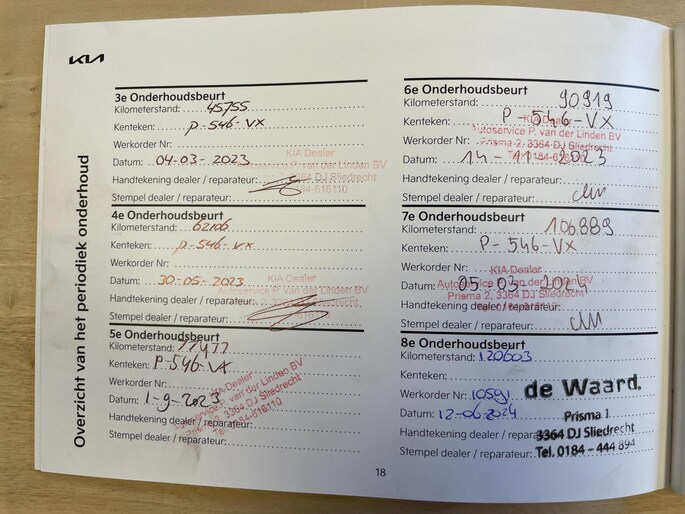 KIA
Overzicht van het periodiek onderhoud
3e Onderhoudsbeurt
Kilometerstand: 45755
Kenteken: P-546-VX
Werkorder Nr:
Datum: 04-03-2023
Handtekening dealer / reparateur:
Stempel dealer / reparateur:
KIA Dealer
P. van der Linden BV
3364 DJ Sliedrecht
0184-616110
4e Onderhoudsbeurt
Kilometerstand: 62106
Kenteken: P-546-VX
Werkorder Nr:
Datum: 30-05-2023
Handtekening dealer / reparateur:
Stempel dealer / reparateur:
KIA Dealer
P. van der Linden BV
3364 DJ Sliedrecht
5e Onderhoudsbeurt
Kilometerstand: 77477
Kenteken: P-546-VX
Werkorder Nr:
Datum: 1-9-2023
Handtekening dealer / reparateur:
Stempel dealer / reparateur:
KIA-Dealer
Autoservice P. van der Linden BV
Prisma 2, 3364 DJ Sliedrecht
0184-616110
6e Onderhoudsbeurt
Kilometerstand: 90919
Kenteken: P-546-VX
Werkorder Nr:
Datum: 14-11-2023
Handtekening dealer / reparateur:
Stempel dealer / reparateur:
KIA Dealer
Autoservice P. van der Linden BV
Prisma 2, 3364 DJ Sliedrecht
0184-616110
7e Onderhoudsbeurt
Kilometerstand: 106889
Kenteken: P-546-VX
Werkorder Nr:
Datum: 05-03-2024
Handtekening dealer / reparateur:
Stempel dealer / reparateur:
KIA-Dealer
Autoservice P. van der Linden BV
Prisma 2, 3364 DJ Sliedrecht
8e Onderhoudsbeurt
Kilometerstand: 120603
Kenteken:
Werkorder Nr: 10591
Datum: 12-06-2024
Handtekening dealer / reparateur:
Stempel dealer / reparateur:
de Waard.
Prisma 1
3364 DJ Sliedrecht
Tel. 0184 - 444 894
18